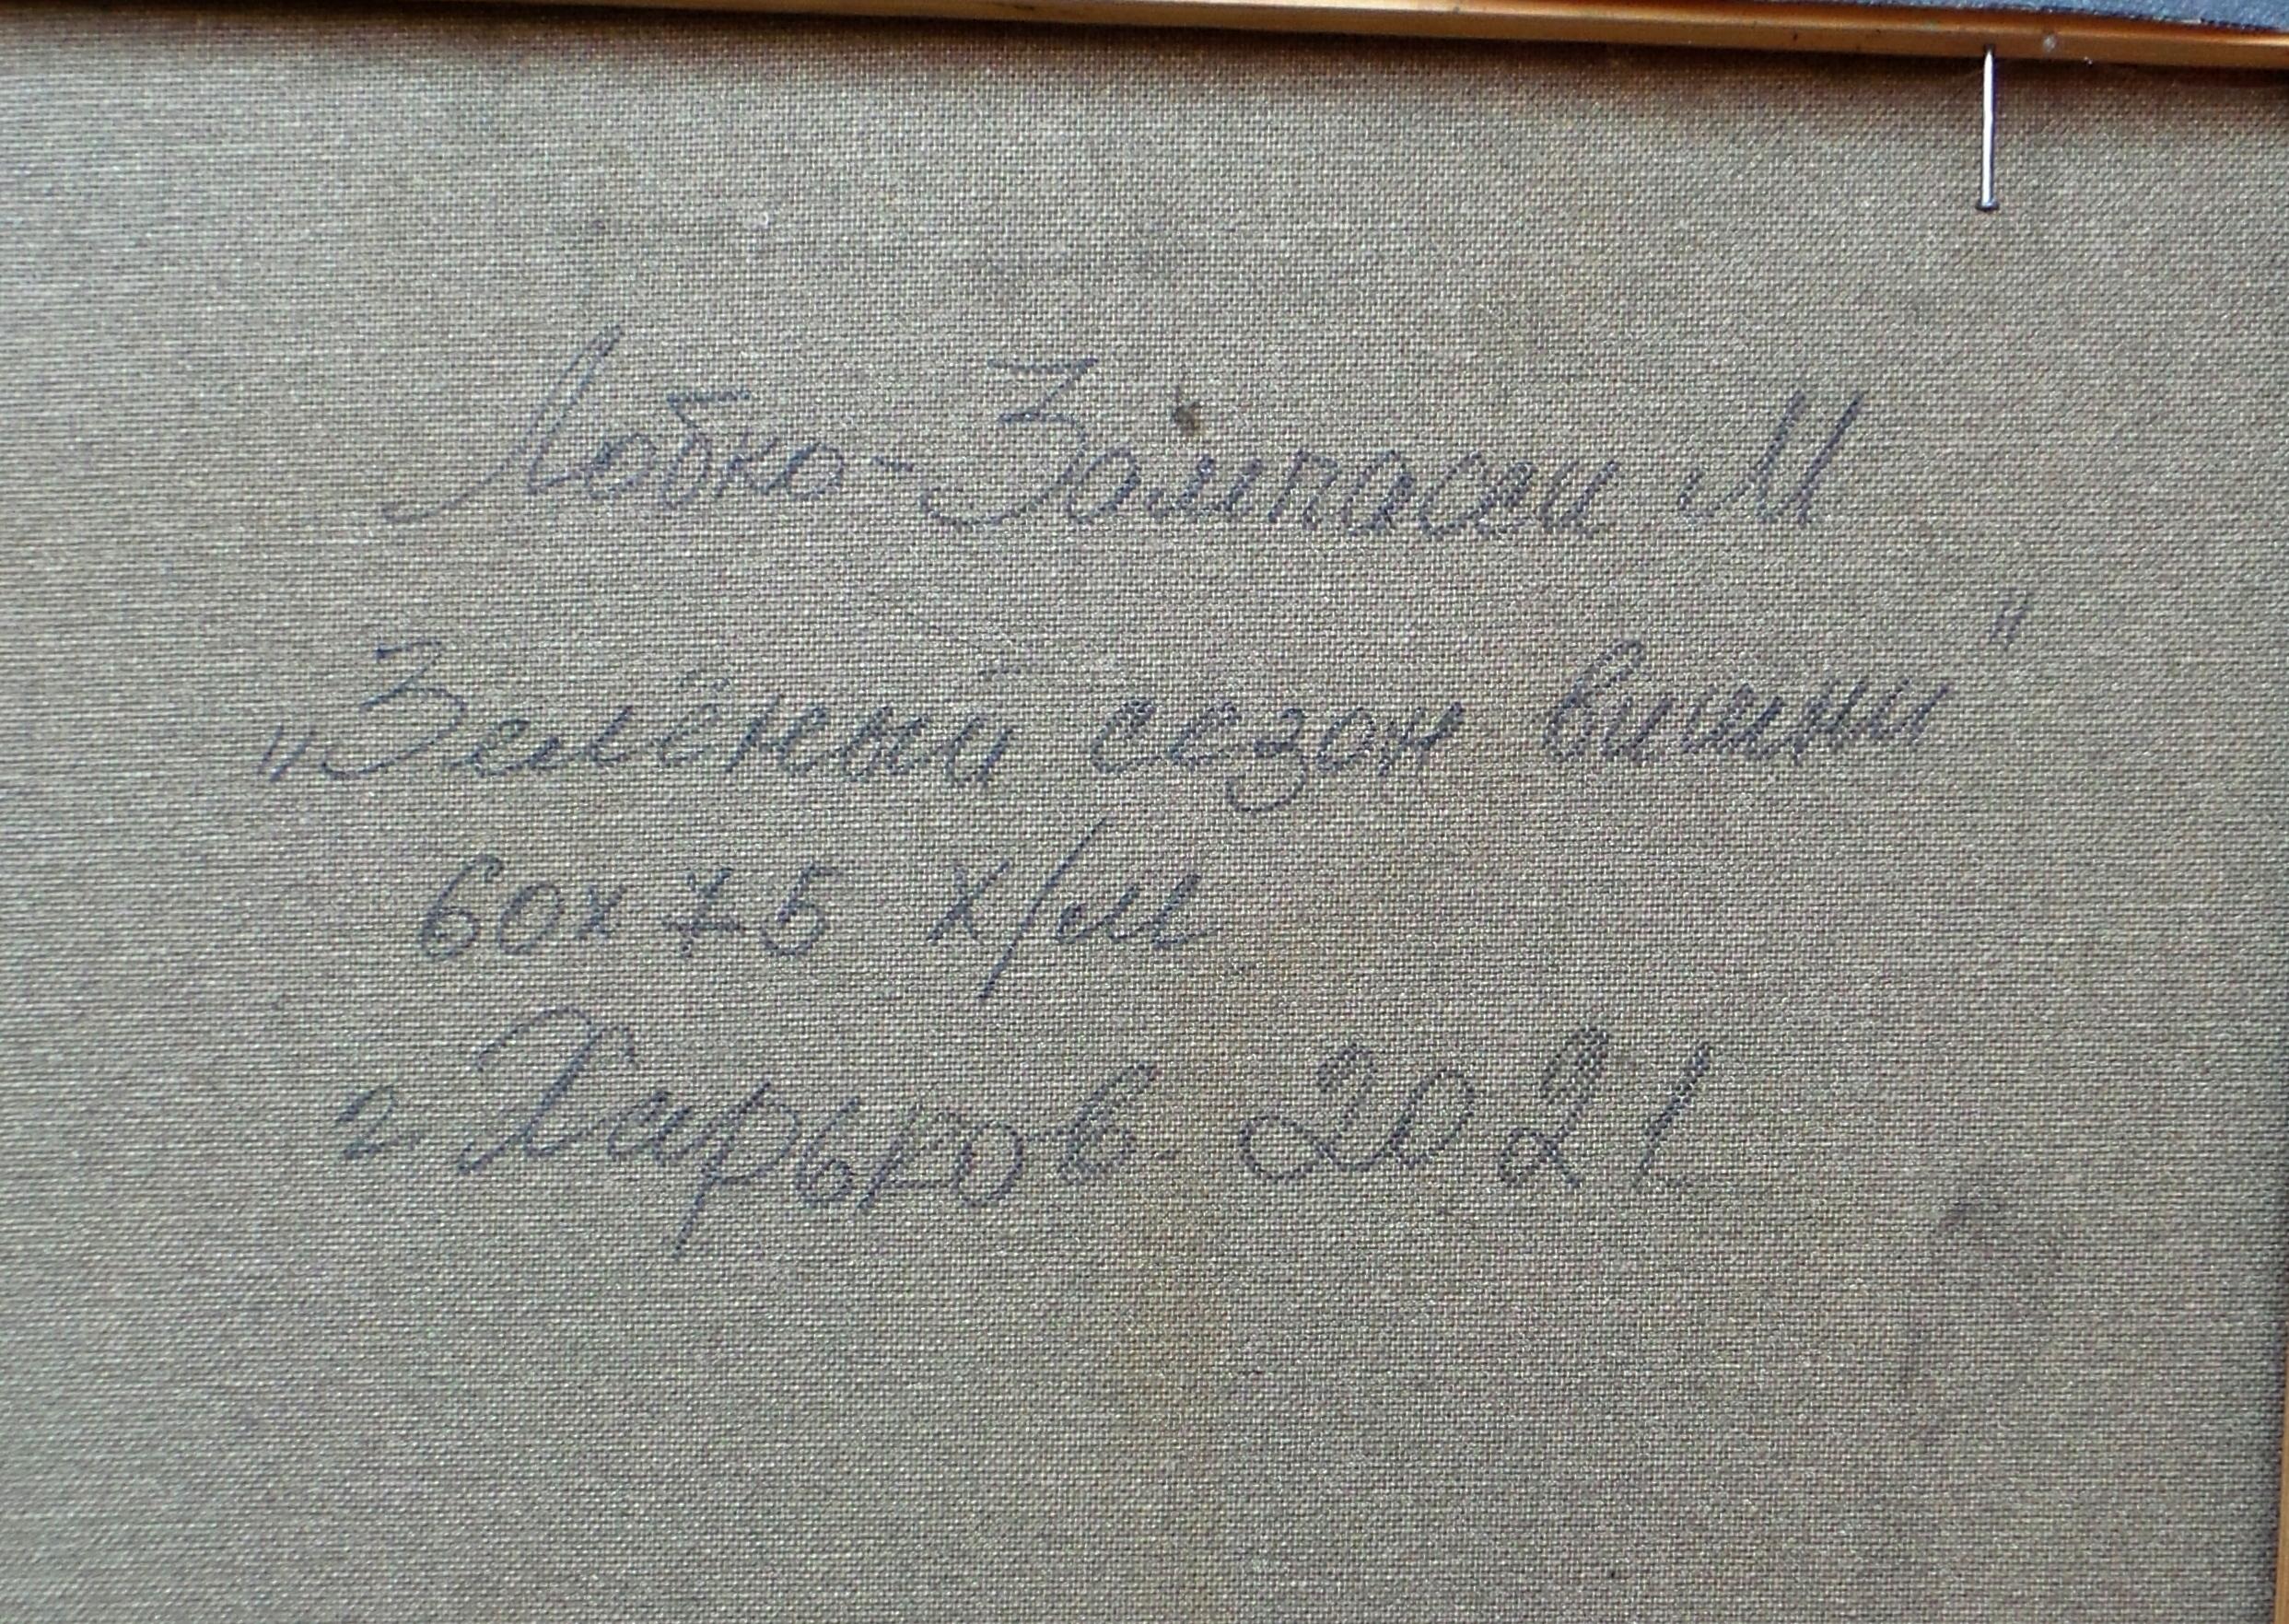 Лобко-Зампасси М
„Зелёный сезон вишни"
60х75 х/м
г Харьков 2021